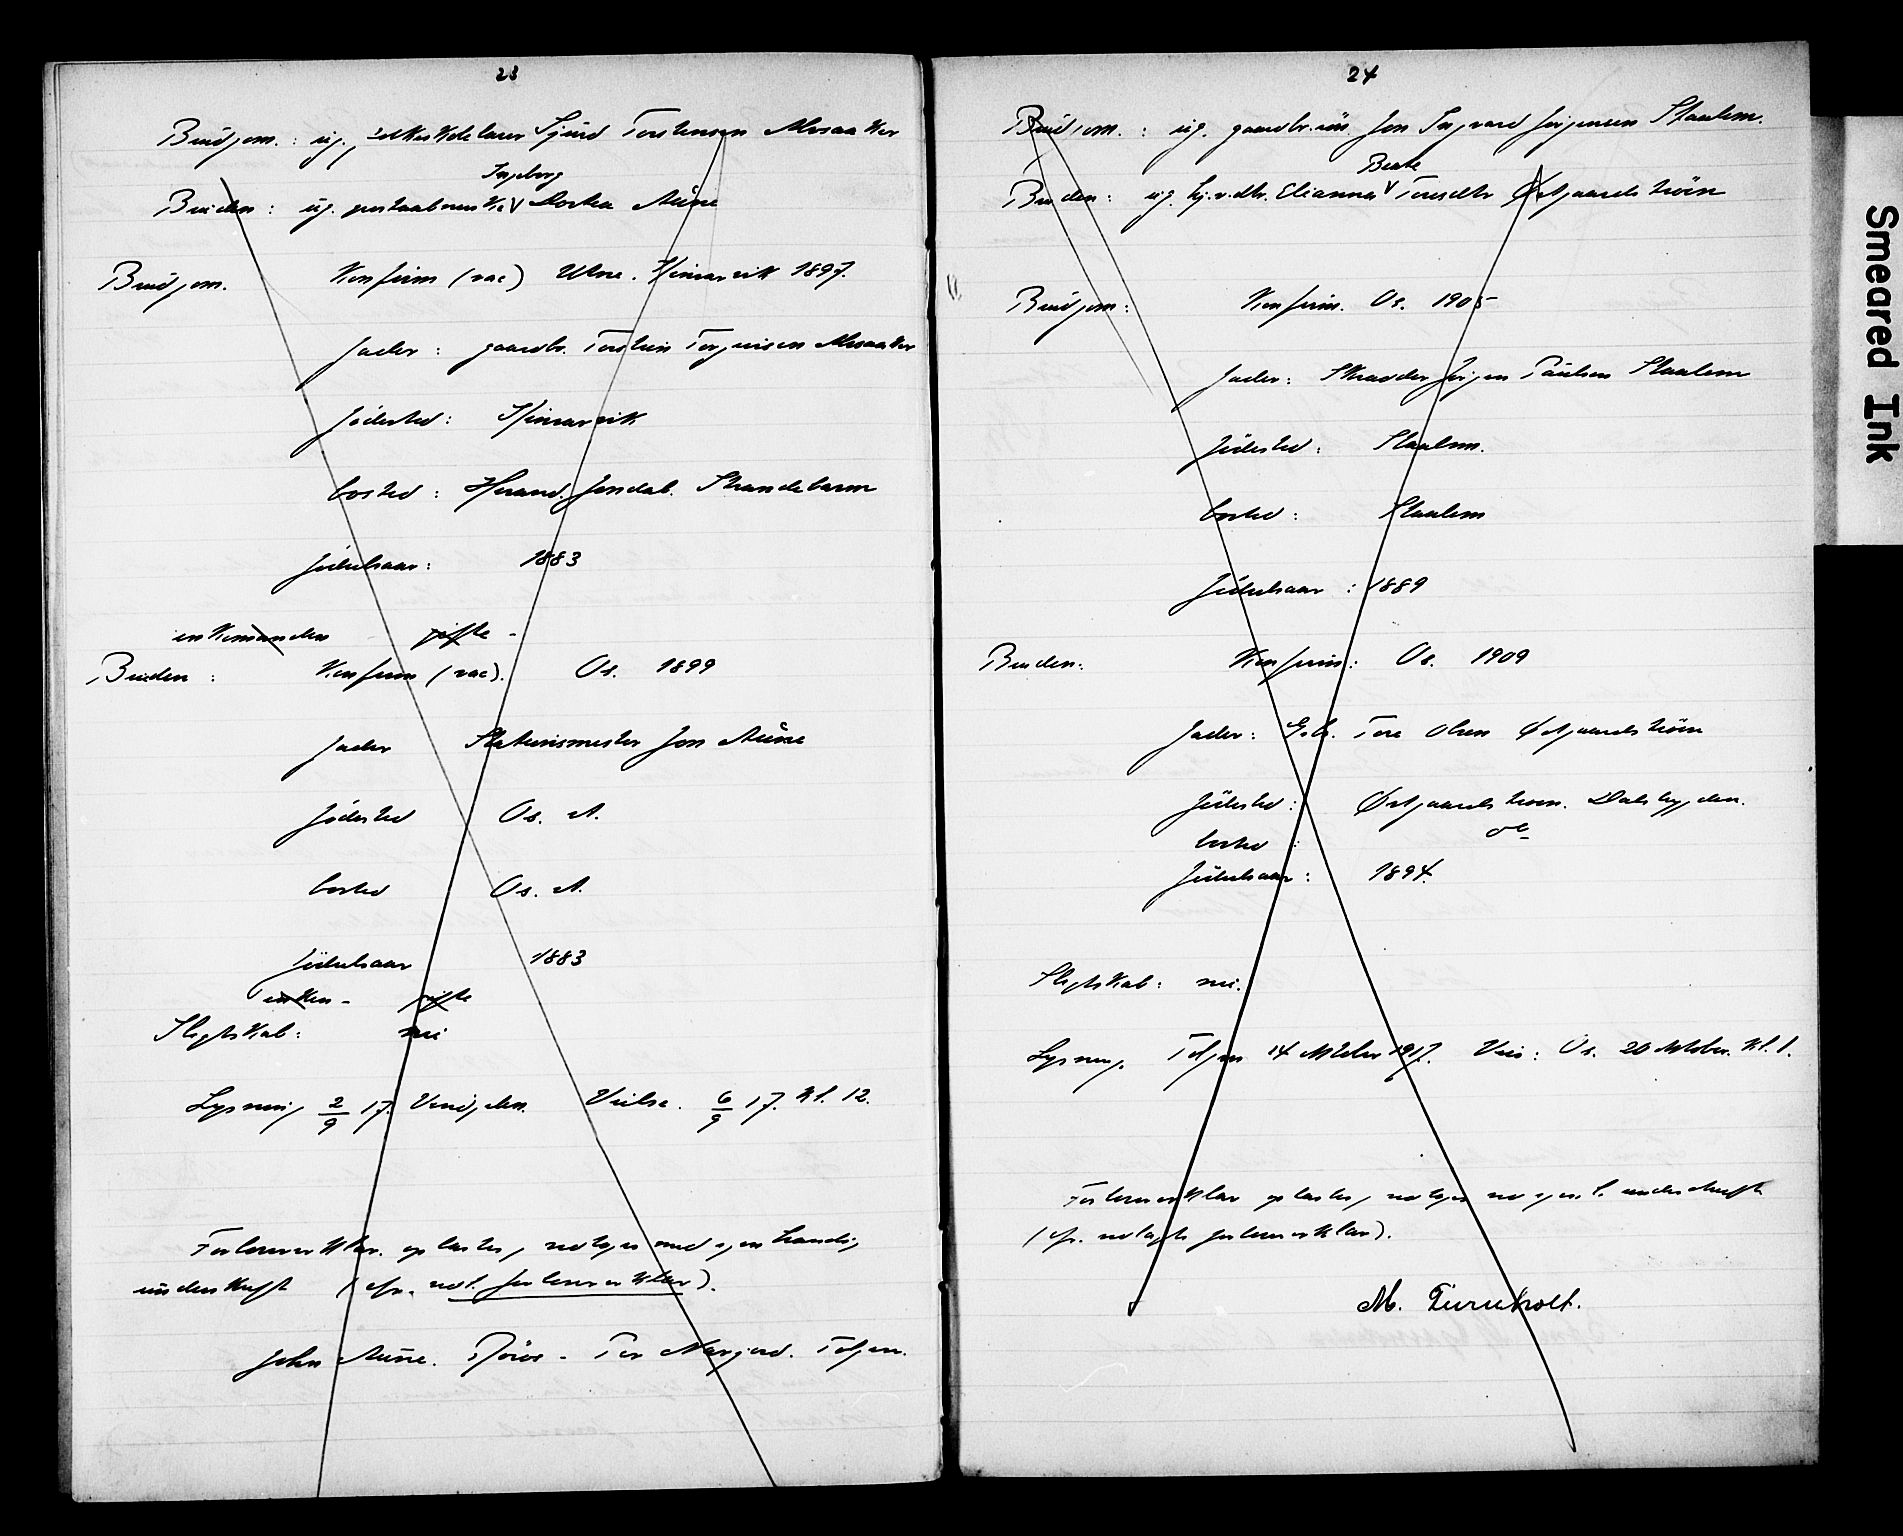 23
Brudgom. : ug. folkeskolelærer Sjurd Torsteinsen Alvsaaker
Ingeborg
Bruden : ug. Dorthea Aune
Brudgom. Konfirm (vac) Utne. Kinsarvik 1897.
fader : gaardbr. Torstein Torgeirsen Alvsaaker
födested : Kinsarvik
bosted : Herand. Jondal. Strandebarm
födselsaar : 1883
enkemanden gifte -
Bruden : Konfirm (vac). Os. 1899
fader Stationsmester Jon Aune
födested Os. st.
bosted Os. st.
födselsaar 1883
enken - gifte
Slegtskab : nei
Lysning 2/9 17. Vingelen. Vielse. 6/9 17. kl. 12.
Forlovererklær. oplæstes, vedtoges med egenhændig
underskrift (cfr. vedl. forlovererklær).
John Aune. Röros - Tolgen.
24
Brudgom. : ug. gaardbr.sön Jon Ingvard Jörgensen Staalem.
Beate
Bruden : ug. gj.v.dtr. Elianna Toresdtr Östgaardstrøen
Brudgom : Konfirm. Os. 1905
fader : Skrædder Jörgen Paulsen Staalem
födested : Staalem.
bosted : Staalem
födselsaar : 1889
Bruden : Konfirm : Os. 1909
fader : G.b. Tore Olsen Östgaardströen
födested : Östgaardströen. Dalsbygden.
bosted : do
födselsaar : 1894.
Slegtskab : nei.
Lysning. Tolgen 14 oktober 1917. Viet : Os. 20 oktober. kl. 1.
Forlovererklær oplæstes, vedtoges ved egenh. underskrift
(cfr. vedlagte forlovererklær).
M. Turnholt.
Smeared Ink